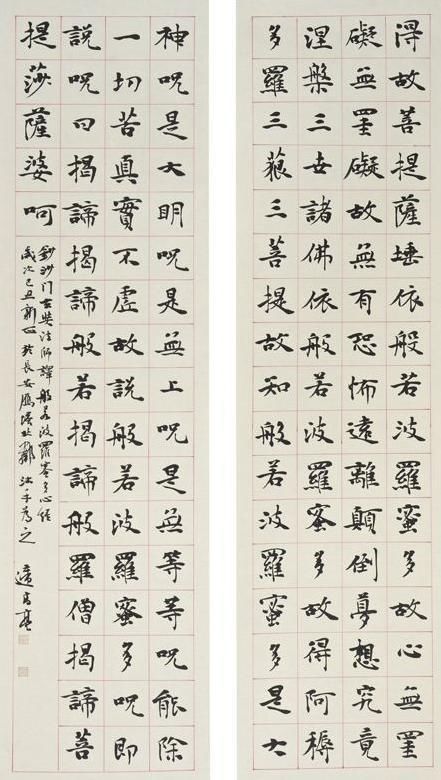 得故菩提薩埵依般若波羅蜜多故心無罣
礙無罣礙故無有恐怖遠離顛倒夢想究竟
涅槃三世諸佛依般若波羅蜜多故得阿耨
多羅三藐三菩提故知般若波羅蜜多是大
神呪是大明呪是無上呪是無等等呪能除
一切苦真實不虛故說般若波羅蜜多呪即
說呪曰揭諦揭諦般若揭諦般羅僧揭諦菩
提莎薩婆呵
鈔沙门玄奘法師譯般若波羅蜜多心經
歲次己丑新正於長安雁塔北鄰沐手為之